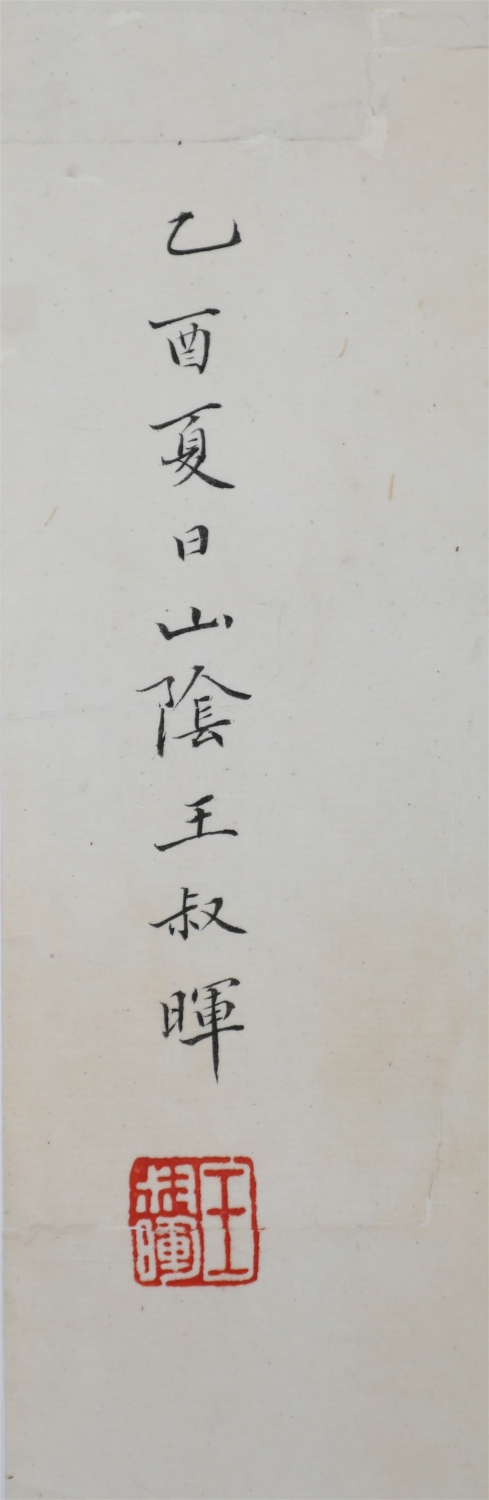 乙酉夏日山陰王叔暉
王叔暉